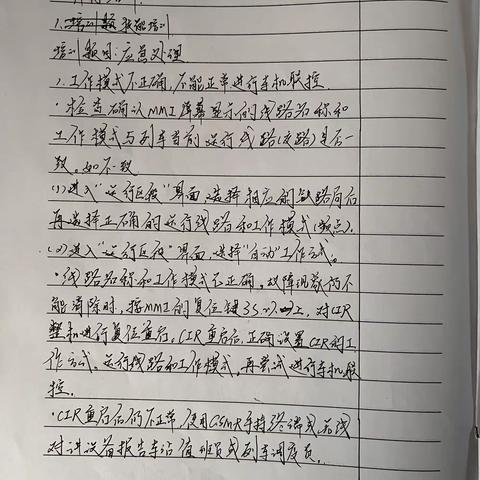 1.技能培训
培训题目:应急处理
1.工作模式不正确,不能正常进行车机联控.
·检查确认MMI屏幕显示的线路名称和
工作模式与列车当前运行线路(交路)是否一
致。如不一致
(1)进入“运行区段”界面,选择相应的铁路局后
再选择正确的运行线路和工作模式(频点).
(2)进入“运行区段”界面,选择“自动”工作方式。
·线路名称和工作模式已正确,故障现象仍不
能消除时,按MMI的复位键3S以上,对CIR
整机进行复位重启,CIR重启后,正确设置CIR的工
作方式、运行线路和工作模式,再尝试进行车机联
控.
·CIR重启后仍不正常,使用GSM-R手持终端或无线
对讲设备报告车站值班员或列车调度员.